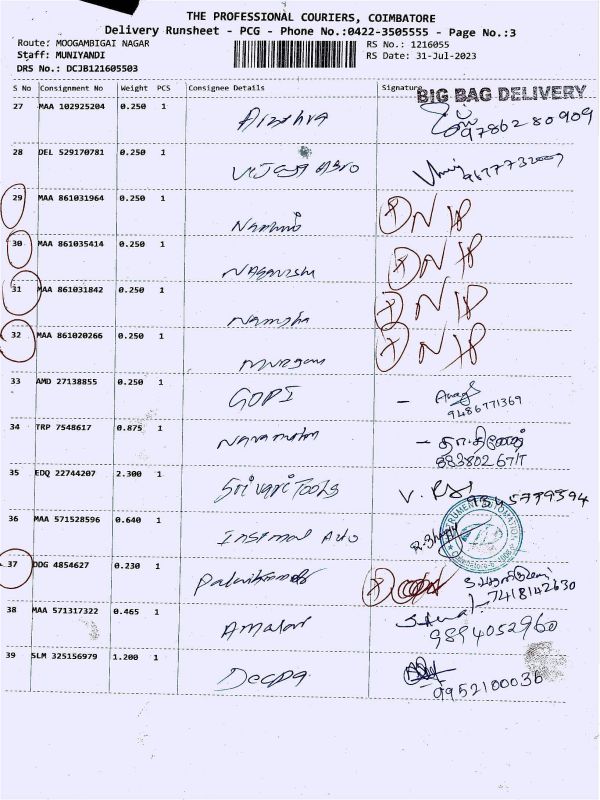 THE PROFESSIONAL COURIERS, COIMBATORE
Delivery Runsheet - PCG - Phone No.:0422-3505555 - Page No.:3
Route: MOOGAMBIGAI NAGAR RS No.: 1216055
Staff: MUNIYANDI RS Date: 31-Jul-2023
DRS No.: DCJB121605503
S No Consignment No Weight PCS Consignee Details Signature
BIG BAG DELIVERY
27 MAA 102925204 0.250 1 9786280909
28 DEL 529170781 0.250 1
29 MAA 861031964 0.250 1 NIP
30 MAA 861035414 0.250 1 NIP
31 MAA 861031842 0.250 1 NIP
32 MAA 861020266 0.250 1 NIP
33 AMD 27138855 0.250 1 GOPI
9486771369
34 TRP 7548617 0.875 1
35 EDQ 22744207 2.300 1 Sri Vari Tools
36 MAA 571528596 0.640 1 Auto
37 DDG 4854627 0.230 1
7418142630
38 MAA 571317322 0.465 1
9894052960
39 SLM 325156979 1.200 1 Deepa
9952100036